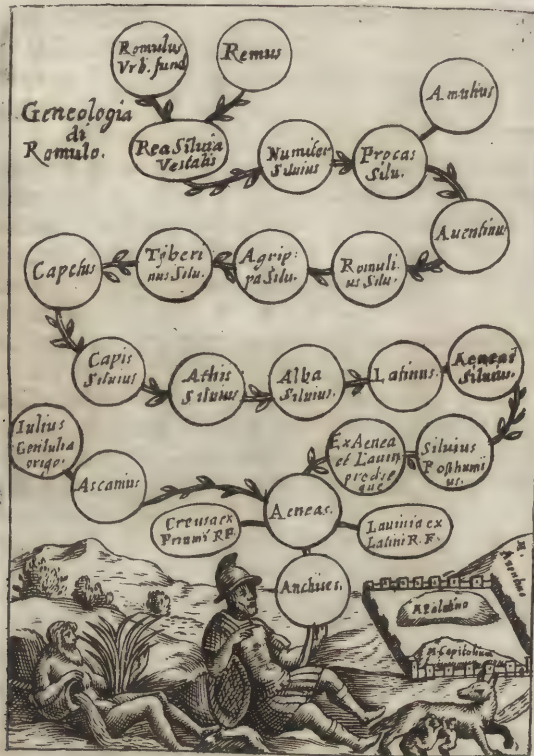 Geneologia
di
Romulo.
Romulus
Vrb. fund
Remus
Rea Siluia
Vestalis
Numitor
Siluius
Procas
Silu.
Amulius
Auentinus
Romuli:
us Silu.
Agrip:
pa Silu.
Tyberi
nus Silu.
Capetus
Capis
Siluius
Athis
Siluius
Alba
Siluius.
Latinus.
Aeneas
Siluius.
Siluius
Posthumi
us.
Ex Aenea
et Lauin
prodie
que
Iulius
Gentulia
origo.
Ascanius
Aeneas.
Creusa ex
Priami R.F.
Lauinia ex
Latini R. F.
Anchises.
M.
Auentino
M. Palatino
M. Capitolium